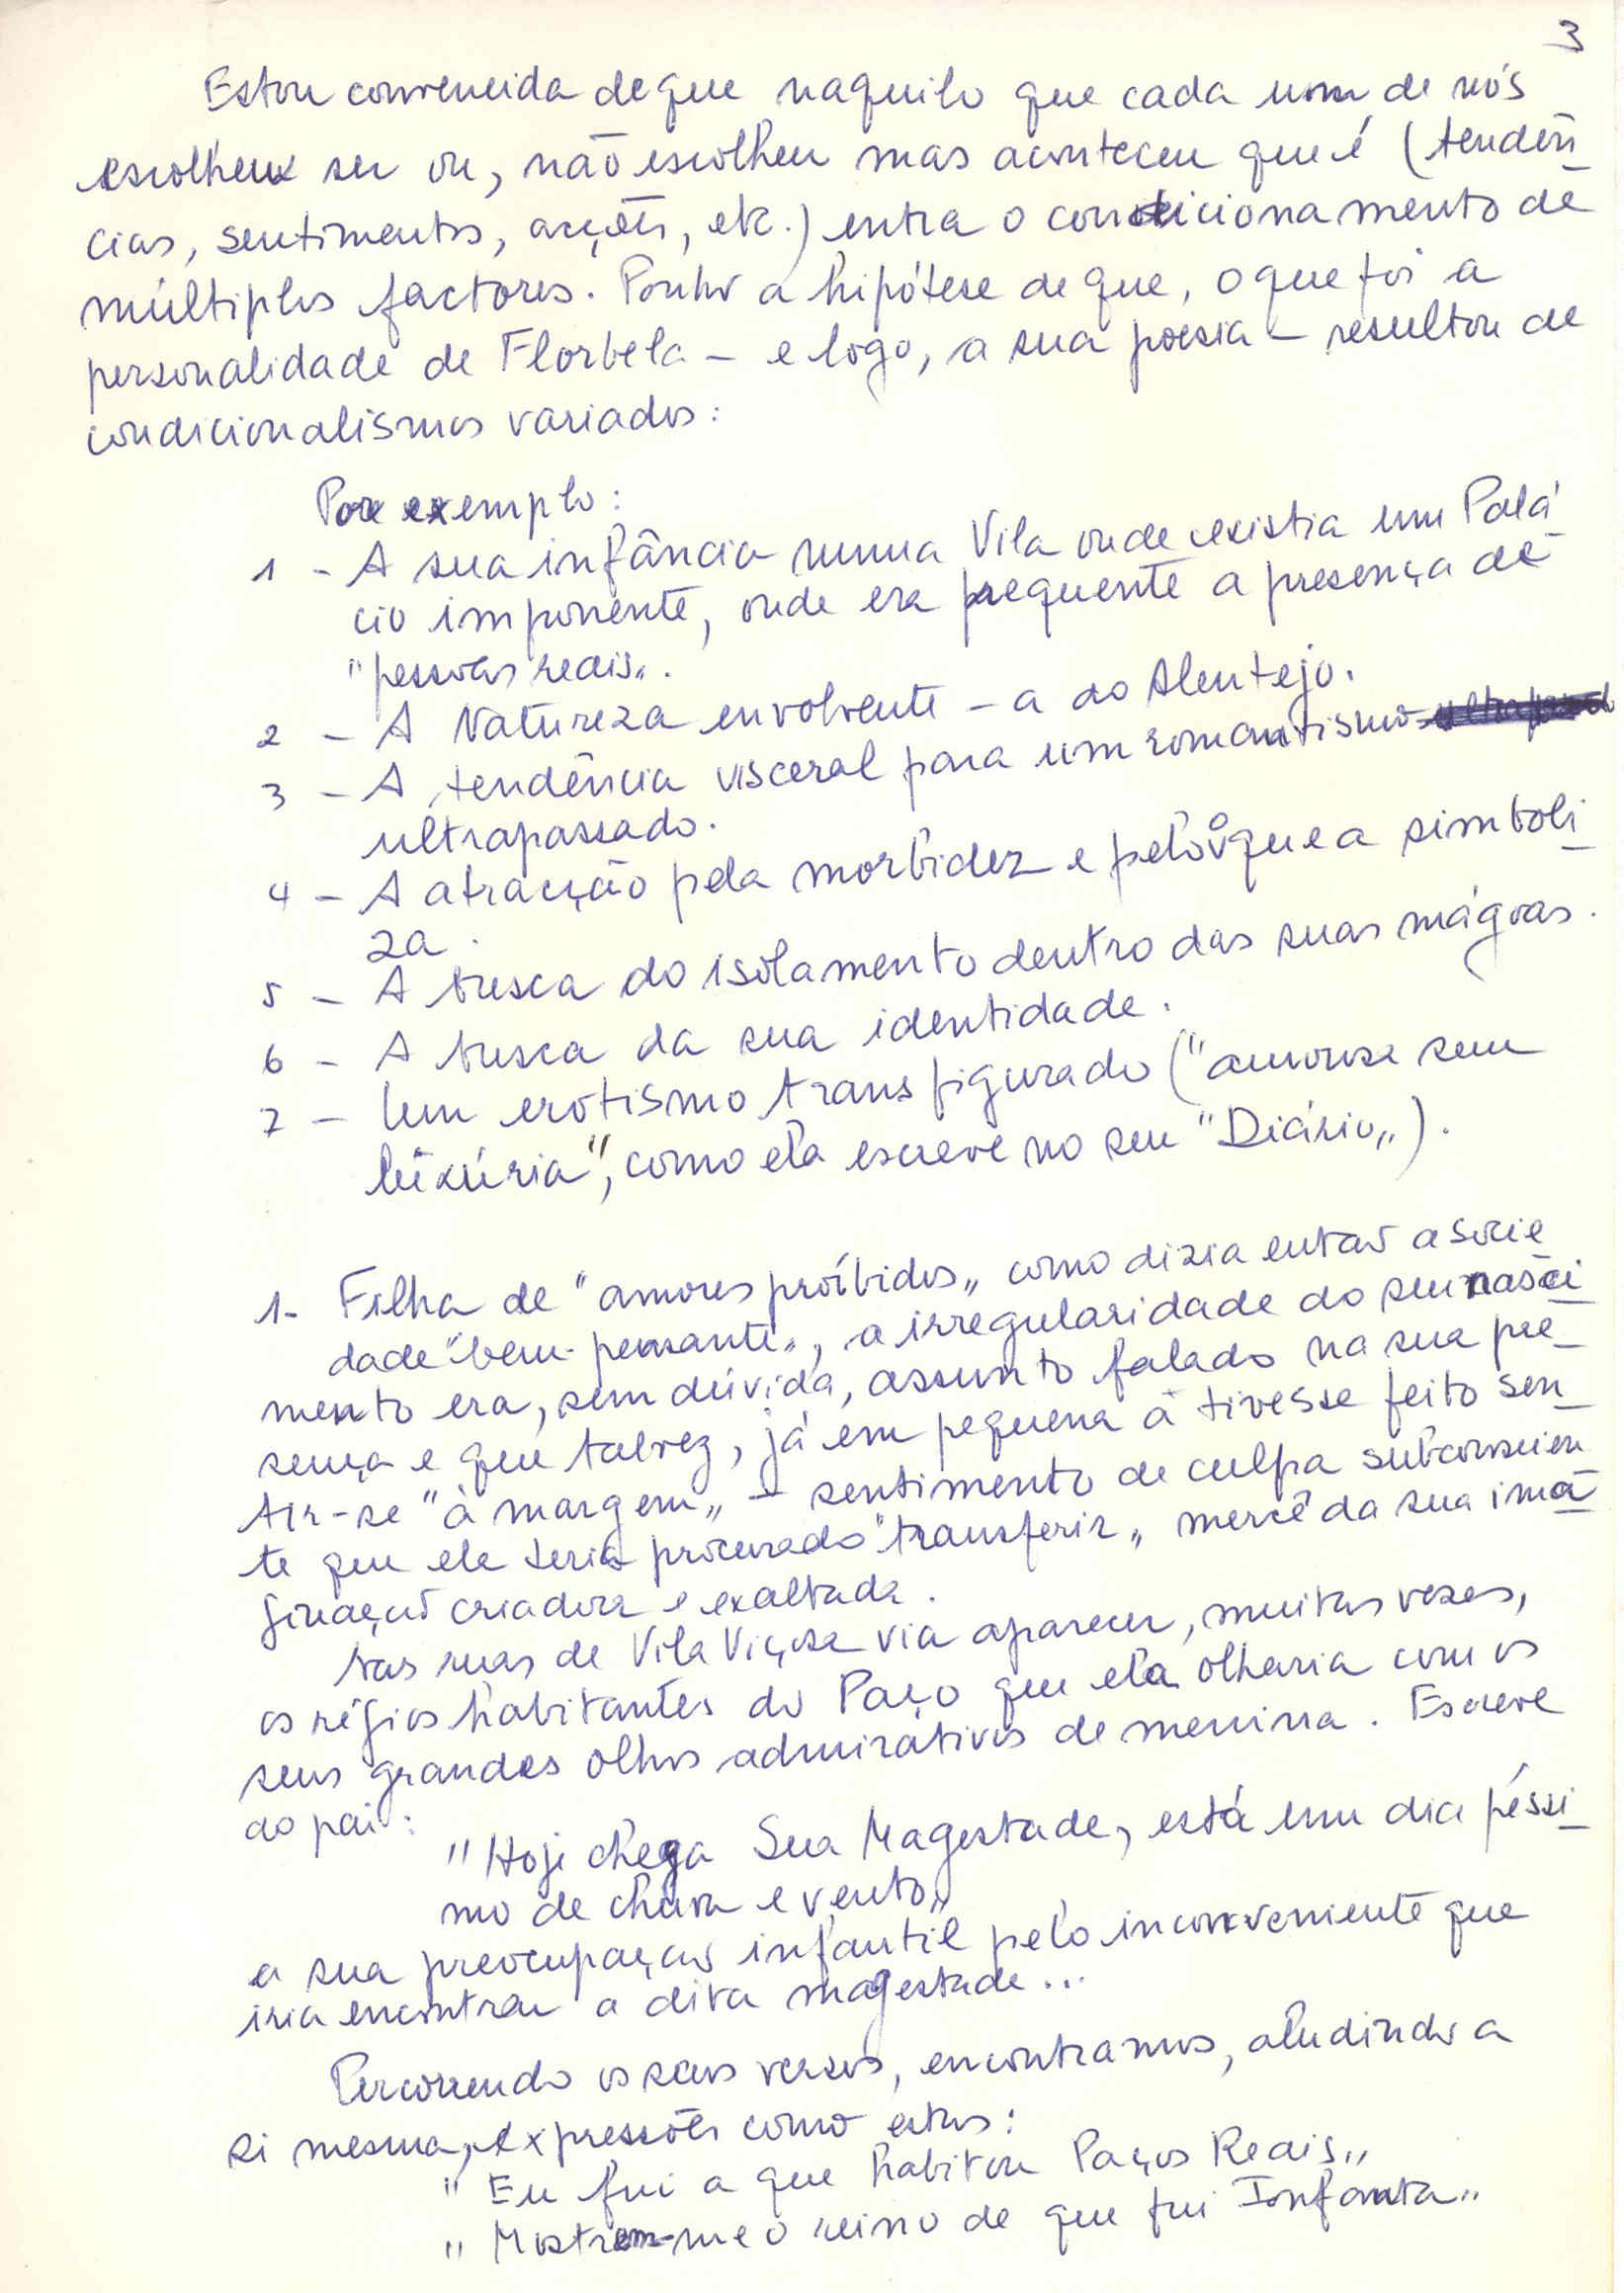 3
Estou convencida de que naquilo que cada um de nós
escolheu ser ou, não escolheu mas aconteceu que é (tendên
cias, sentimentos, acções, etc.) entra o condicionamento de
múltiplos factores. Ponho a hipótese de que, o que foi a
personalidade de Florbela – e logo, a sua poesia – resultou de
condicionalismos variados:
Por exemplo:
1 – A sua infância numa Vila onde existia um Palá
cio imponente, onde era frequente a presença de
"pessoas reais".
2 – A Natureza envolvente – a do Alentejo.
3 – A tendência visceral para um romantismo
ultrapassado.
4 – A atracção pela morbidez e pelo que a simboli
za.
5 – A busca do isolamento dentro das suas mágoas.
6 – A busca da sua identidade.
7 – Um erotismo transfigurado ("amorosa sem
luxúria", como ela escreve no seu "Diário").
1- Filha de "amores proíbidos" como dizia então a socie
dade "bem-pensante", a irregularidade do seu nasci
mento era, sem dúvida, assunto falado na sua pre
sença e que talvez, já em pequena a tivesse feito sen
tir-se "à margem" – sentimento de culpa subconscien
te que ela teria procurado "transferir" mercê da sua ima
ginação criadora e exaltada.
Nas ruas de Vila Viçosa via aparecer, muitas vezes,
os régios habitantes do Paço que ela olharia com os
seus grandes olhos admirativos de menina. Escreve
ao pai:
"Hoje chega Sua Magestade, está um dia péssi
mo de chuva e vento"
e a sua preocupação infantil pelo inconveniente que
iria encontrar a dita magestade...
Percorrendo os seus versos, encontramos, aludindo a
si mesma, expressões como estas:
"Eu fui a que habitou Paços Reais"
"Mostrem-me o reino de que fui Infanta"